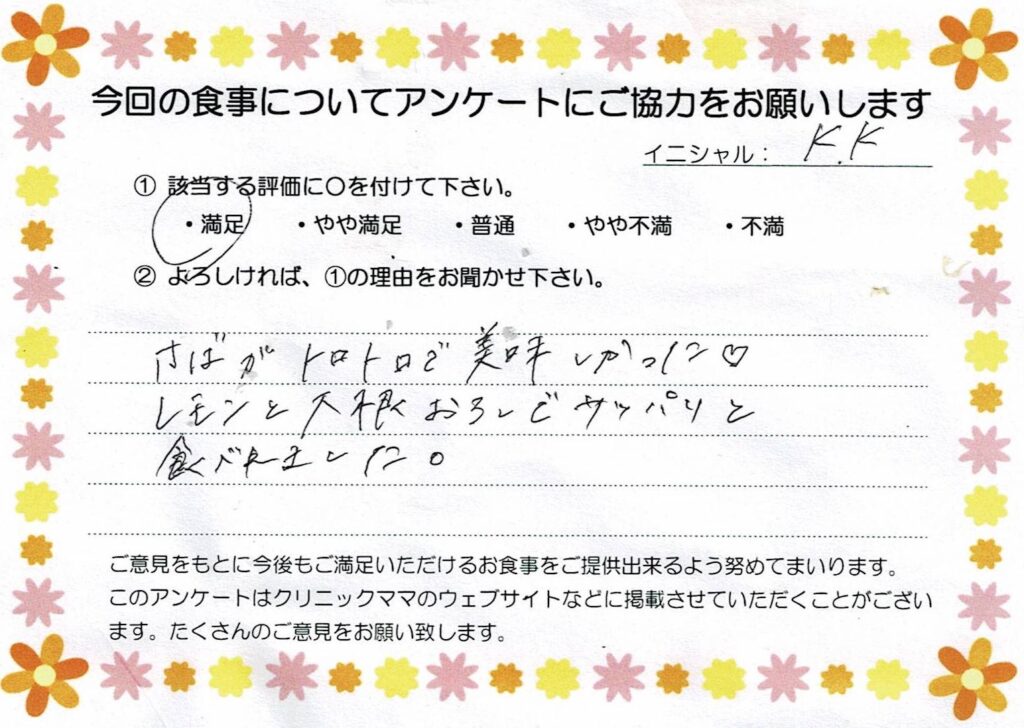 今回の食事についてアンケートにご協力をお願いします
イニシャル： K.K
① 該当する評価に〇を付けて下さい。
・満足 ・やや満足 ・普通 ・やや不満 ・不満
② よろしければ、①の理由をお聞かせ下さい。
さばがトロトロで美味しかった♡
レモンと大根おろしでサッパリと
食べれました。
ご意見をもとに今後もご満足いただけるお食事をご提供出来るよう努めてまいります。
このアンケートはクリニックママのウェブサイトなどに掲載させていただくことがござい
ます。たくさんのご意見をお願い致します。